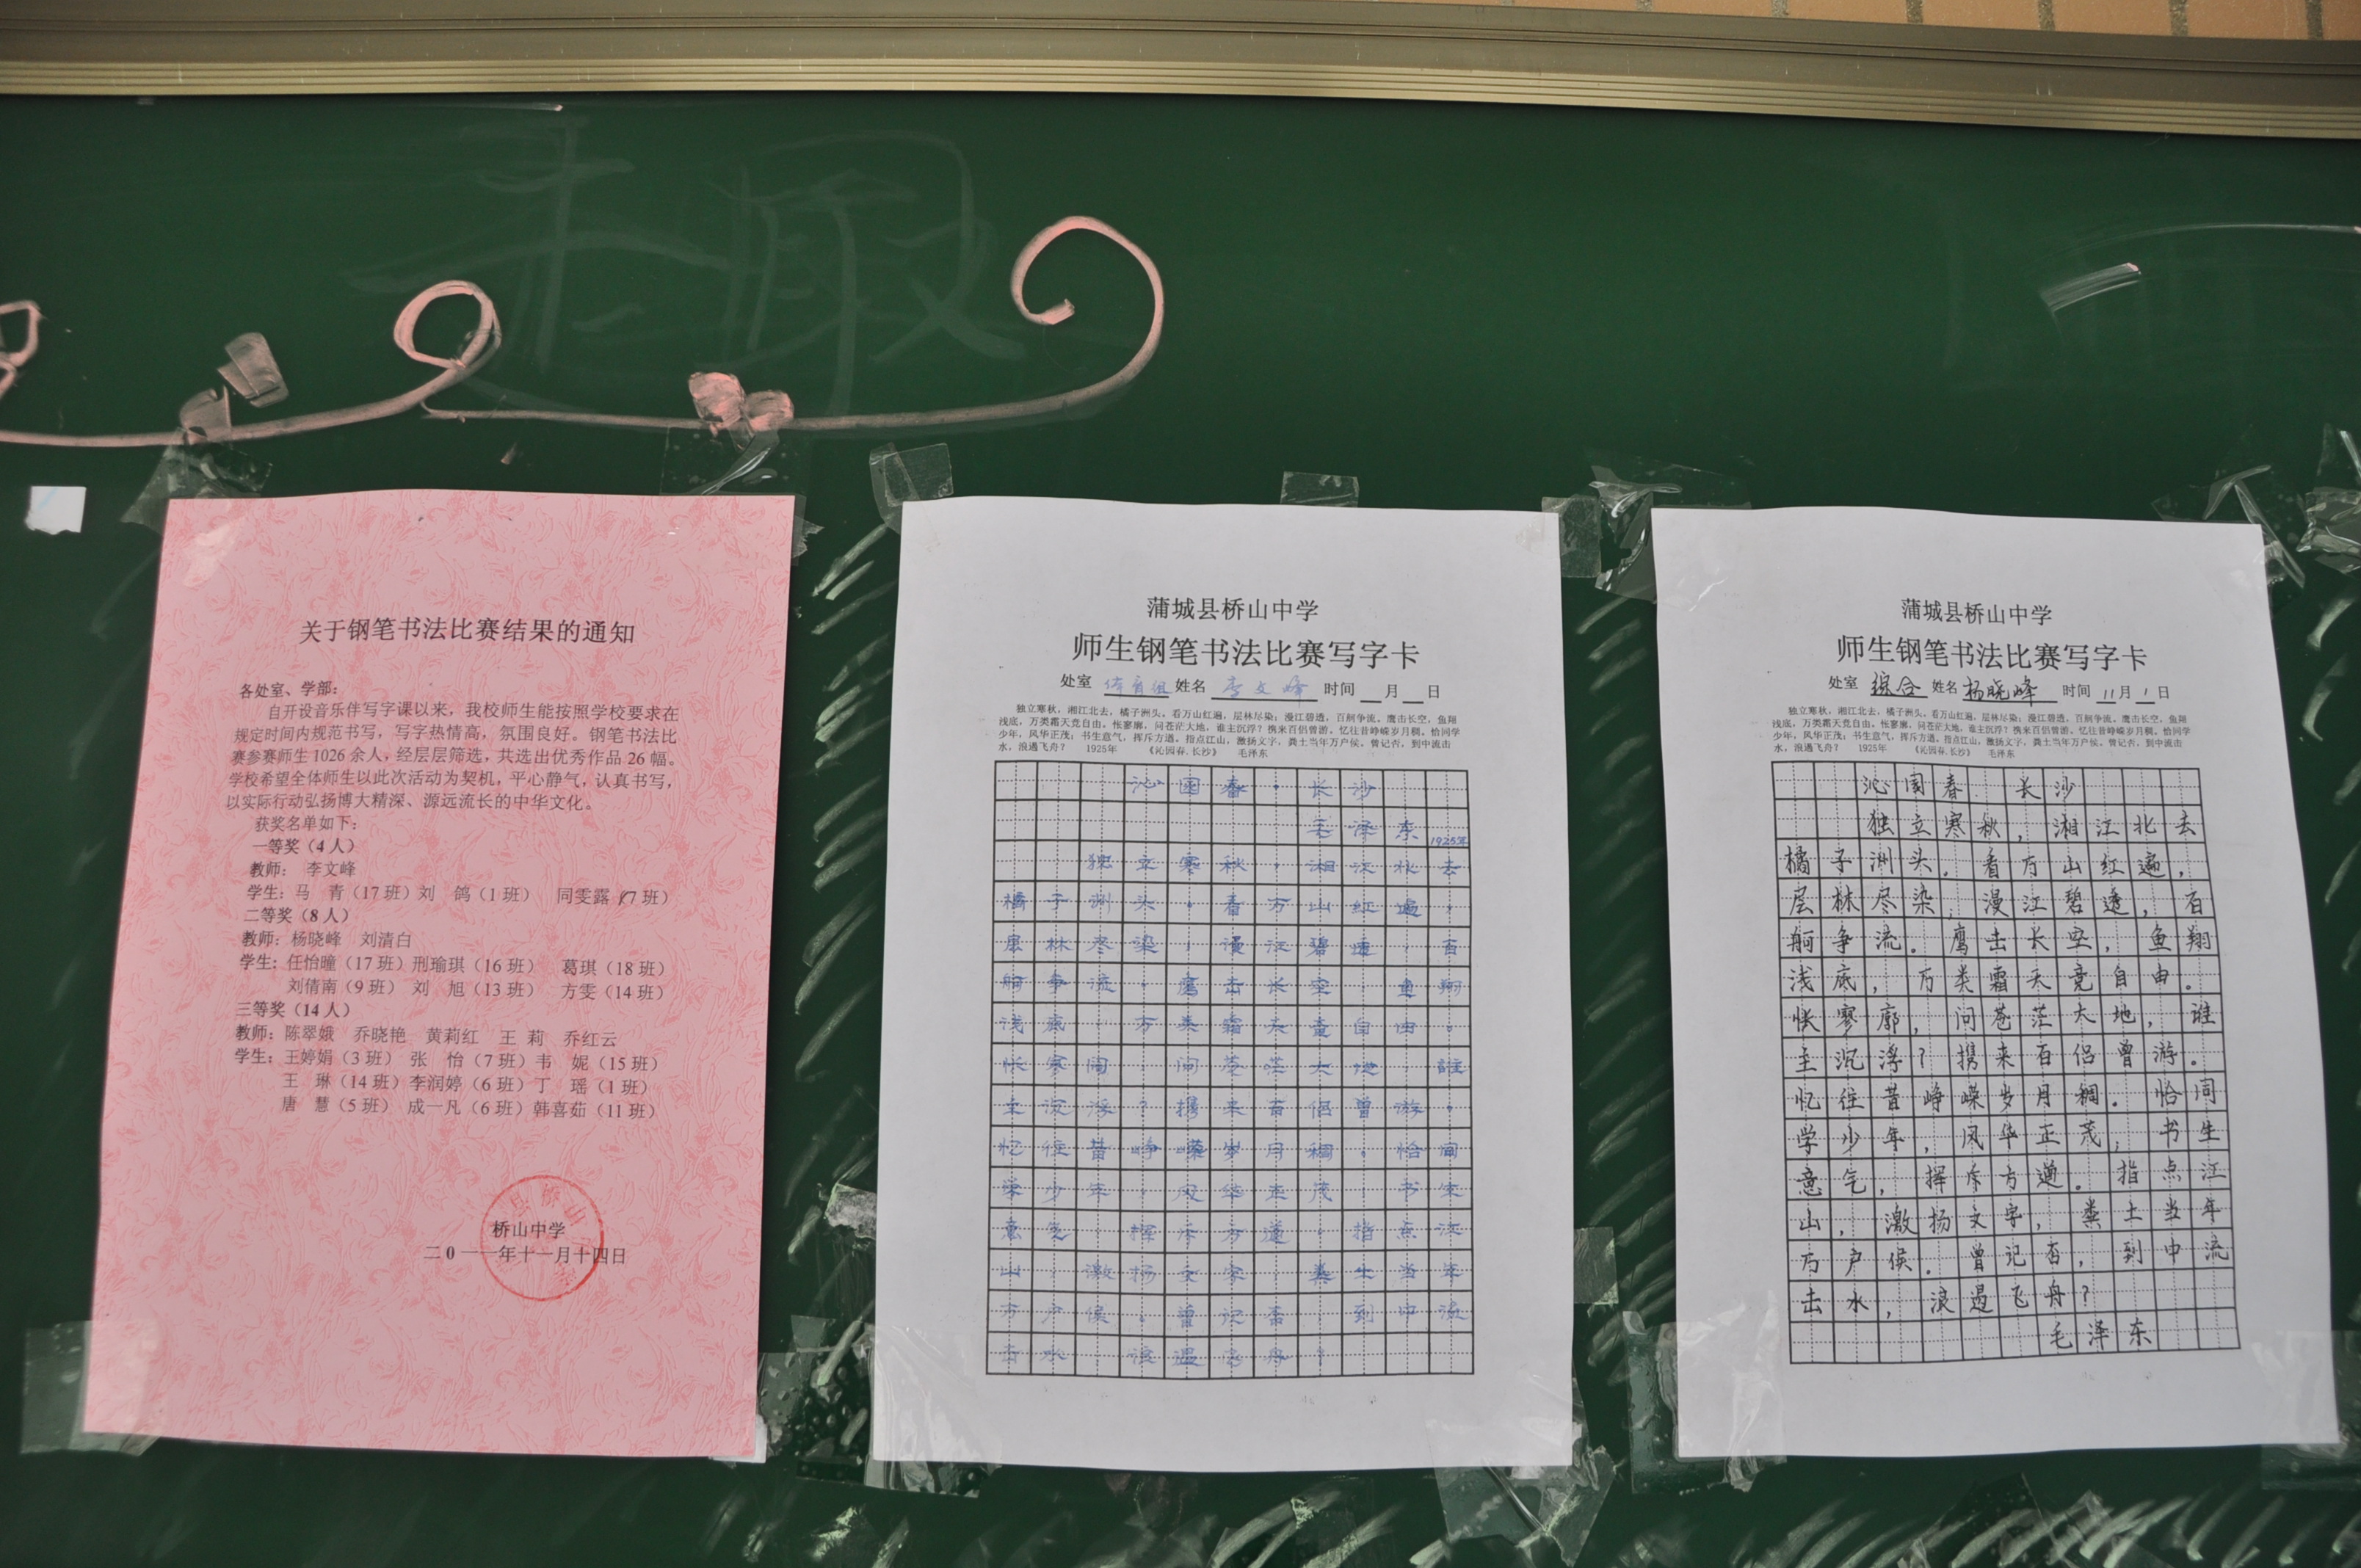 关于钢笔书法比赛结果的通知
各处室、学部：
自开设音乐伴写字课以来，我校师生能按照学校要求在
规定时间内规范书写，写字热情高，氛围良好。钢笔书法比
赛参赛师生 1026 余人，经层层筛选，共选出优秀作品 26 幅。
学校希望全体师生以此次活动为契机，平心静气，认真书写，
以实际行动弘扬博大精深、源远流长的中华文化。
获奖名单如下：
一等奖（4 人）
教师： 李文峰
学生：马 青（17 班）刘 鸽（1 班） 同雯露（7 班）
二等奖（8 人）
教师：杨晓峰 刘清白
学生：任怡曈（17 班）刑瑜琪（16 班） 葛琪（18 班）
刘倩南（9 班） 刘 旭（13 班） 方雯（14 班）
三等奖（14 人）
教师：陈翠娥 乔晓艳 黄莉红 王 莉 乔红云
学生：王婷娟（3 班） 张 怡（7 班）韦 妮（15 班）
王 琳（14 班）李润婷（6 班）丁 瑶（1 班）
唐 慧（5 班） 成一凡（6 班）韩喜茹（11 班）
桥山中学
二0一一年十一月十四日
蒲城县桥山中学
师生钢笔书法比赛写字卡
处室 体育组 姓名 李文峰 时间 月 日
独立寒秋，湘江北去，橘子洲头。看万山红遍，层林尽染；漫江碧透，百舸争流。鹰击长空，鱼翔
浅底，万类霜天竞自由。怅寥廓，问苍茫大地，谁主沉浮？携来百侣曾游。忆往昔峥嵘岁月稠。恰同学
少年，风华正茂；书生意气，挥斥方遒。指点江山，激扬文字，粪土当年万户侯。曾记否，到中流击
水，浪遏飞舟？ 1925年 《沁园春.长沙》 毛泽东
沁园春·长沙
毛泽东 1925年
独立寒秋，湘江北去
橘子洲头。看万山红遍，
层林尽染，漫江碧透，百
舸争流，鹰击长空，鱼翔
浅底，万类霜天竞自由。
怅寥阔，问苍茫大地，谁
主沉浮？携来百侣曾游。
忆往昔峥嵘岁月稠。恰同
学少年，风华正茂，书生
意气，挥斥方遒。指点江
山，激扬文字，粪土当年
万户侯。曾记否，到中流
击水，浪遏飞舟？
蒲城县桥山中学
师生钢笔书法比赛写字卡
处室 综合 姓名 杨晓峰 时间 11月 1日
独立寒秋，湘江北去，橘子洲头。看万山红遍，层林尽染；漫江碧透，百舸争流。鹰击长空，鱼翔
浅底，万类霜天竞自由。怅寥廓，问苍茫大地，谁主沉浮？携来百侣曾游。忆往昔峥嵘岁月稠。恰同学
少年，风华正茂；书生意气，挥斥方遒。指点江山，激扬文字，粪土当年万户侯。曾记否，到中流击
水，浪遏飞舟？ 1925年 《沁园春.长沙》 毛泽东
沁园春 长沙
独立寒秋，湘江北去
橘子洲头。看万山红遍，
层林尽染，漫江碧透，百
舸争流。鹰击长空，鱼翔
浅底，万类霜天竞自由。
怅寥廓，问苍茫大地，谁
主沉浮？携来百侣曾游。
忆往昔峥嵘岁月稠。恰同
学少年，风华正茂，书生
意气，挥斥方遒。指点江
山，激扬文字，粪土当年
万户侯。曾记否，到中流
击水，浪遏飞舟？
毛泽东